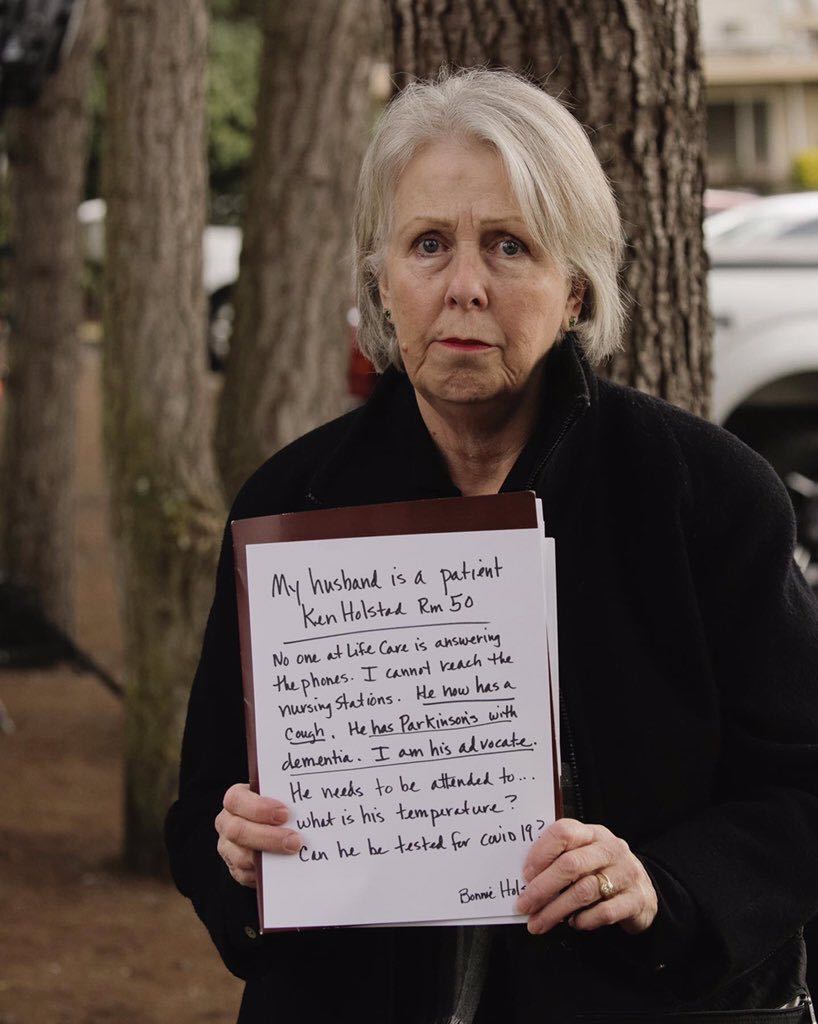 My husband is a patient
Ken Holstad Rm 50
No one at Life Care is answering
the phones. I cannot reach the
nursing stations. He now has a
cough. He has Parkinson's with
dementia. I am his advocate.
He needs to be attended to...
what is his temperature?
Can he be tested for covid 19?
Bonnie